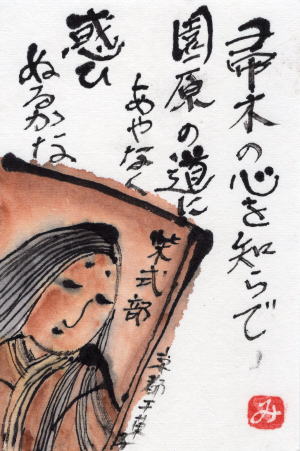 帚木の心を知らで
園原の道に
あやなく
惑ひ
ぬるかな
紫式部
み